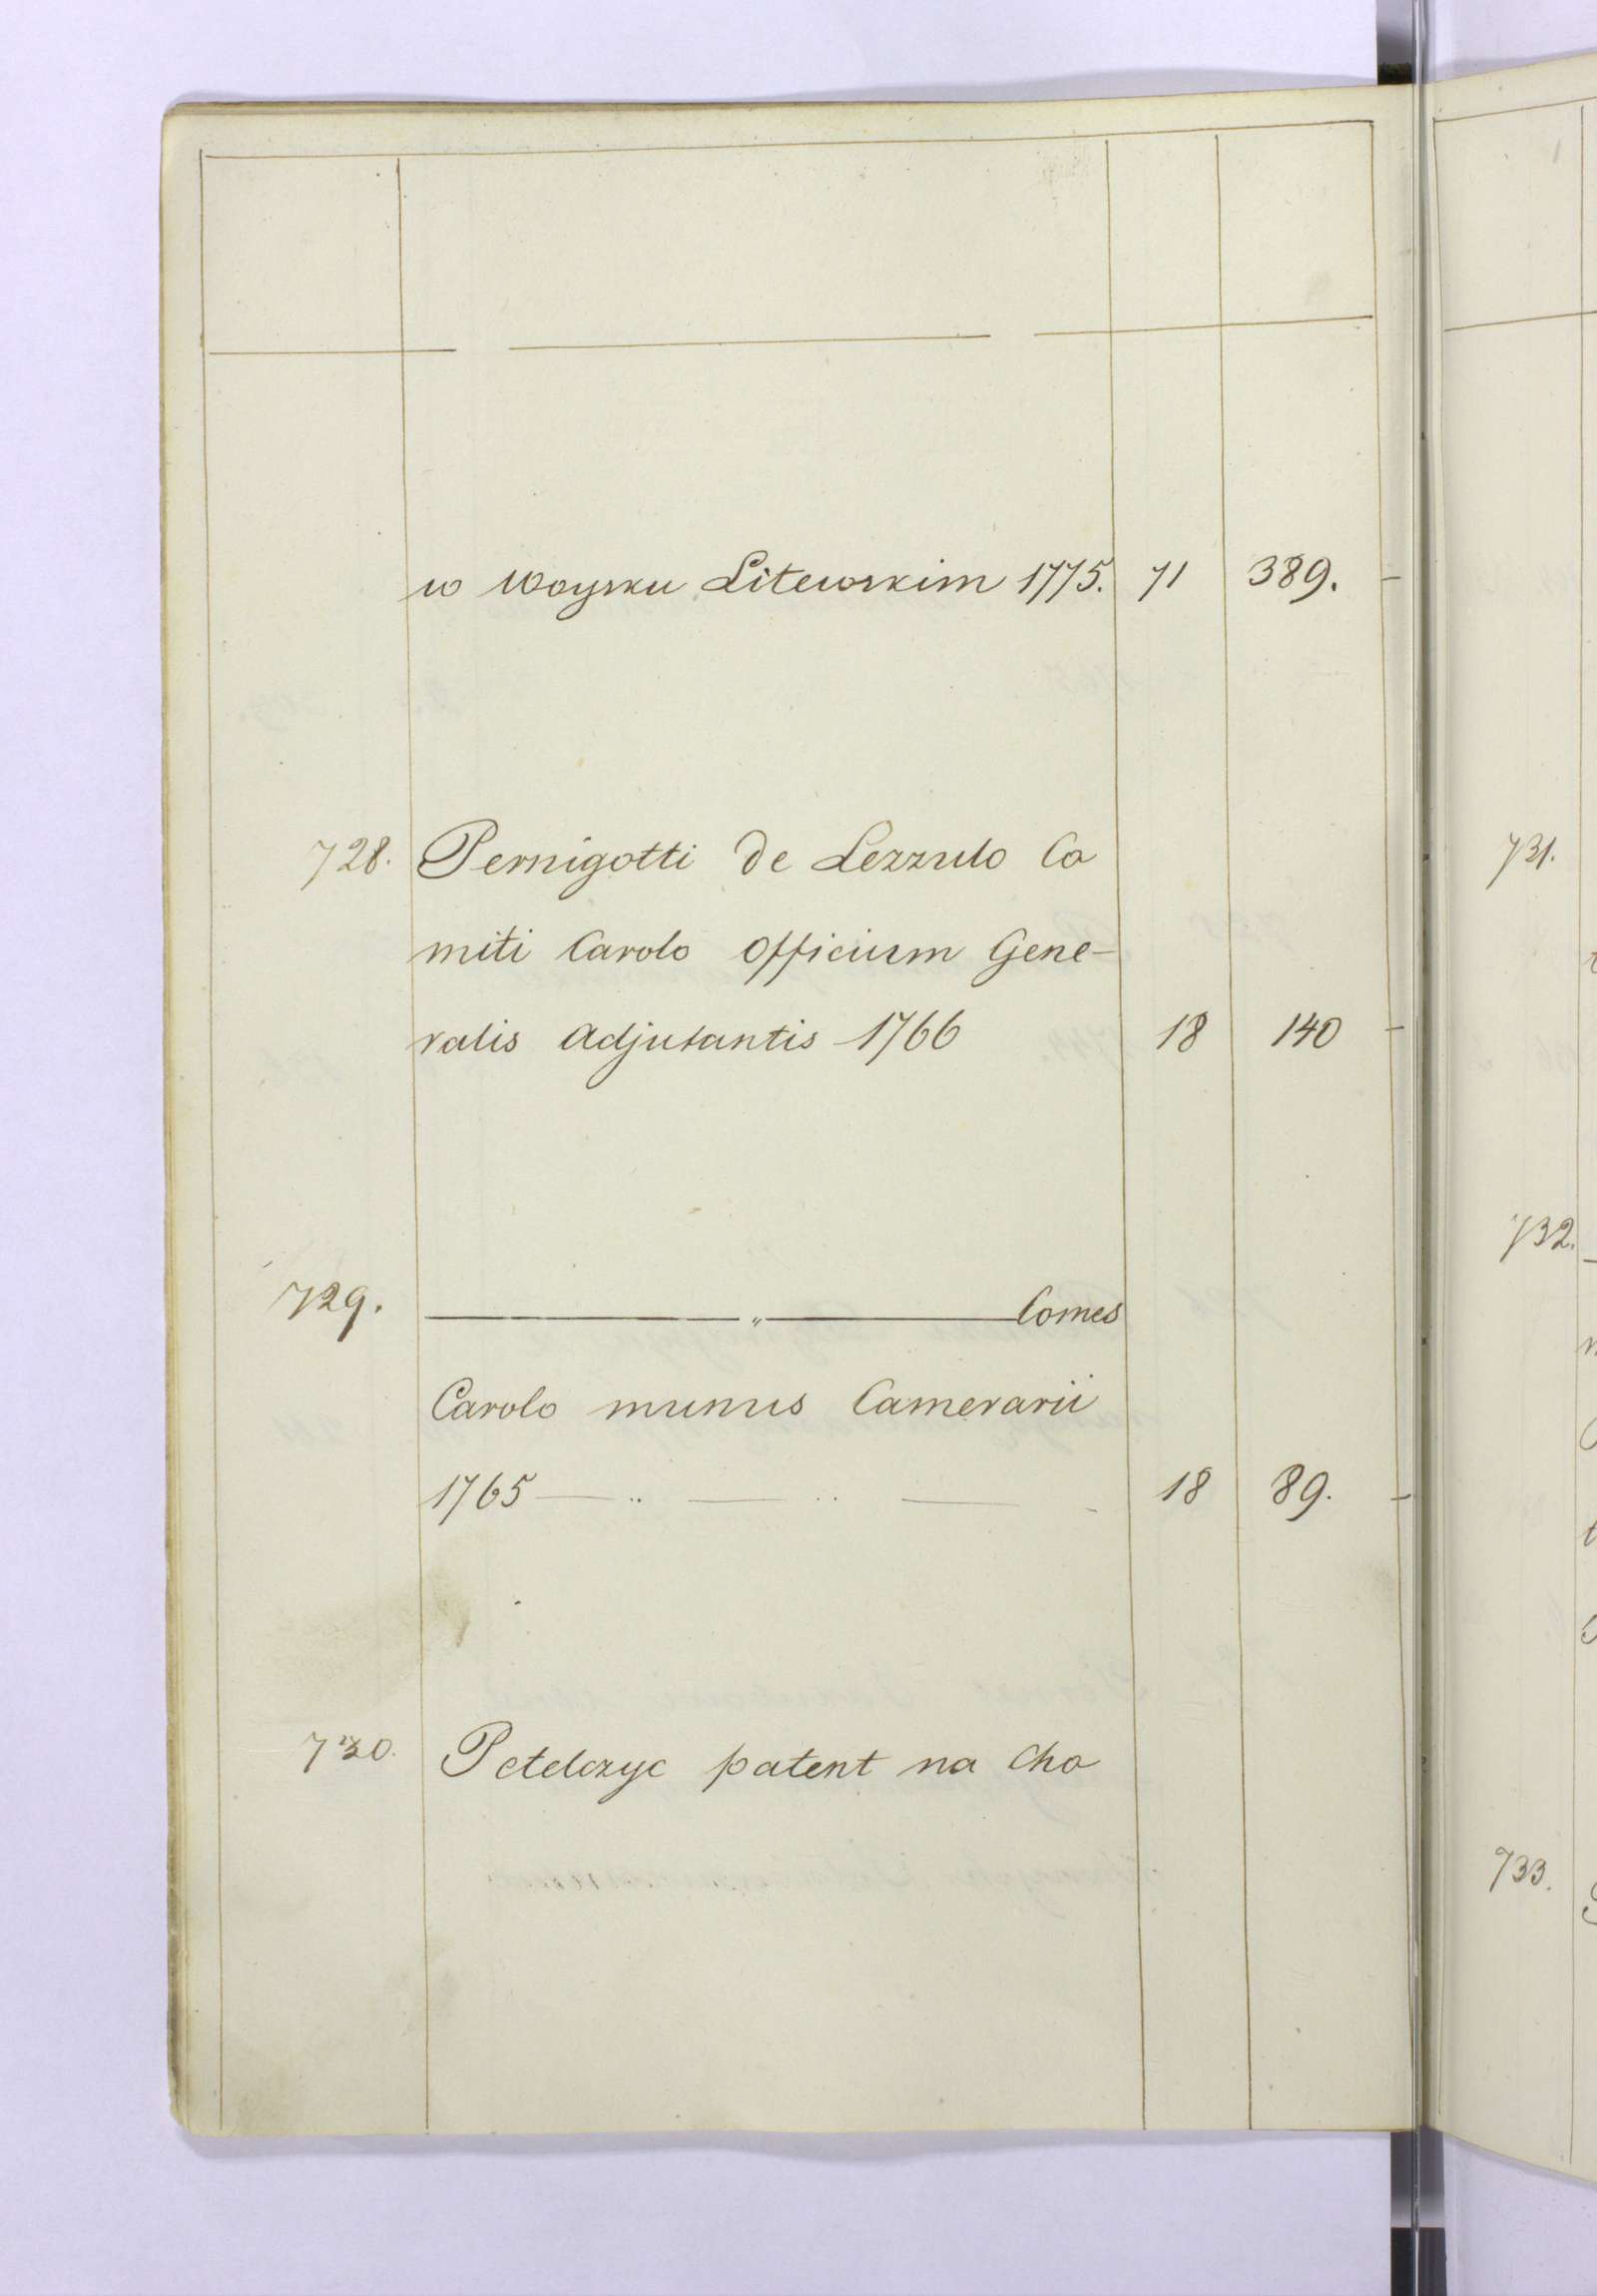 w Woysku Litewskim 1775. 71 389. -
728. Pernigotti de Lezzulo Co
miti Carolo Officium Gene-
ralis Adjutantis 1766 18 140 -
729. ——— „ ——— Comes
Carolo munus Camerarii
1765 — .. — .. — - 18 89. -
730. Petelczyc patent na Cho
731.
732.
733.